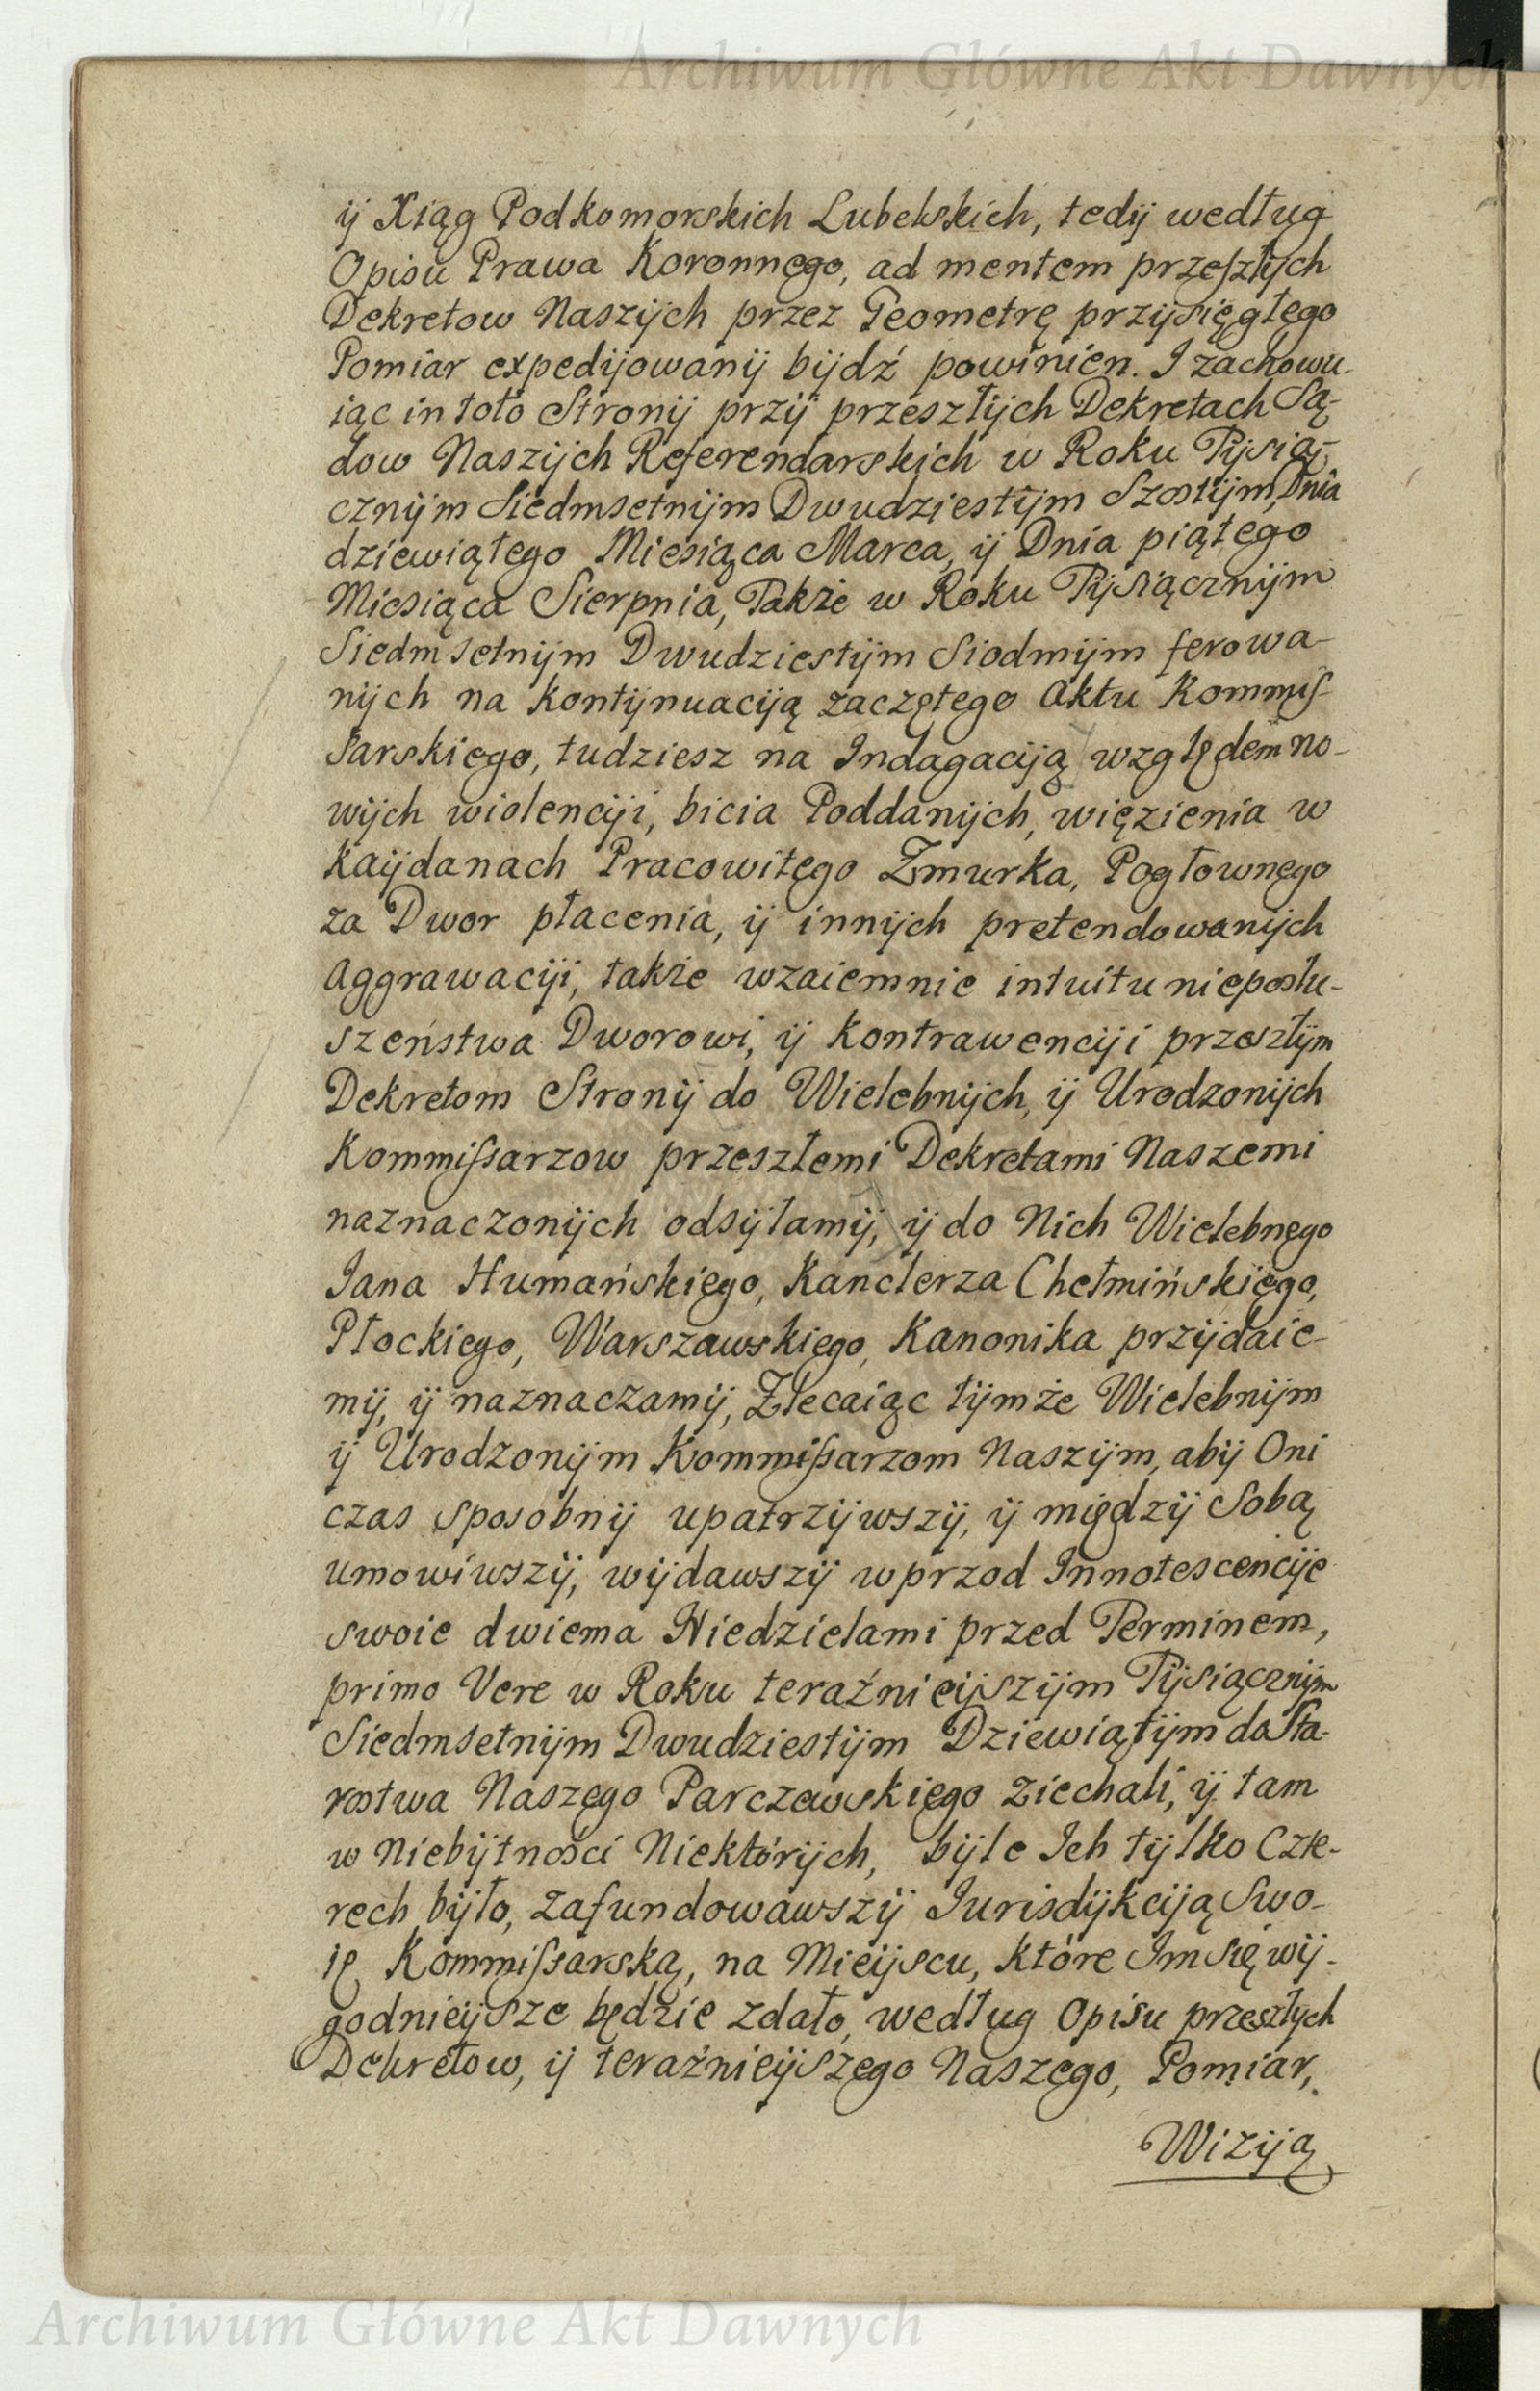 Archiwum Główne Akt Dawnych
ij Xiąg Podkomorskich Lubelskich, tedij według
Opisu Prawa Koronnego, ad mentem przeszłych
Dekretow Naszijch przez Geometrę przijsięgłego
Pomiar expedijowanij bijdź powinien. I zachowu-
iąc in toto Stronij przij przeszłijch Dekretach Są-
dow Naszijch Referendarskich w Roku Tijsią-
cznijm Siedmsetnijm Dwudziestijm Szostijm, Dnia
dziewiątego Miesiąca Marca, ij Dnia piątego
Miesiąca Sierpnia, Także w Roku Tijsiącznijm
Siedmsetnijm Dwudziestijm Siodmijm ferowa-
nijch na kontijnuaciją zaczętego Aktu Kommis-
sarskiego, tudziesz na Indagaciją względem no-
wijch wiolenciji, bicia Poddanijch, więzienia w
kaijdanach Pracowitego Zmurka, Pogłownego
za Dwor płacenia, ij innijch pretendowanijch
Aggrawaciji, także wzaiemnie intuitu nieposłu-
szeństwa Dworowi, ij kontrawenciji przeszłijm
Dekretom Stronij do Wielebnijch, ij Urodzonijch
Kommissarzow przeszłemi Dekretami Naszemi
naznaczonijch odsijłamij, ij do Nich Wielebnego
Iana Humańskiego, Kanclerza Chełmińskiego,
Płockiego, Warszawskiego, Kanonika przijdaie-
mij, ij naznaczamij, Zlecaiąc tijmże Wielebnijm
ij Urodzonijm Kommissarzom Naszijm, abij Oni
czas sposobnij upatrzijwszij, ij międzij Sobą
umowiwszij, wijdawszij wprzod Innotescencije
swoie dwiema Niedzielami przed Terminem,
primo Vere w Roku teraźnieijszijm Tijsiącznijm
Siedmsetnijm Dwudziestijm Dziewiątijm do Sta-
rostwa Naszego Parczewskiego ziechali, ij tam
w Niebijtności Niektórijch, bijle Ich tijlko Czte-
rech bijło, zafundowawszij Iurisdijkciją Swo-
ię Kommissarską, na Mieijscu, które Im się wij-
godnieijsze będzie zdało, według Opisu przeszłych
Dekretow, ij teraźnieijszego Naszego, Pomiar,
Wiziją
Archiwum Główne Akt Dawnych